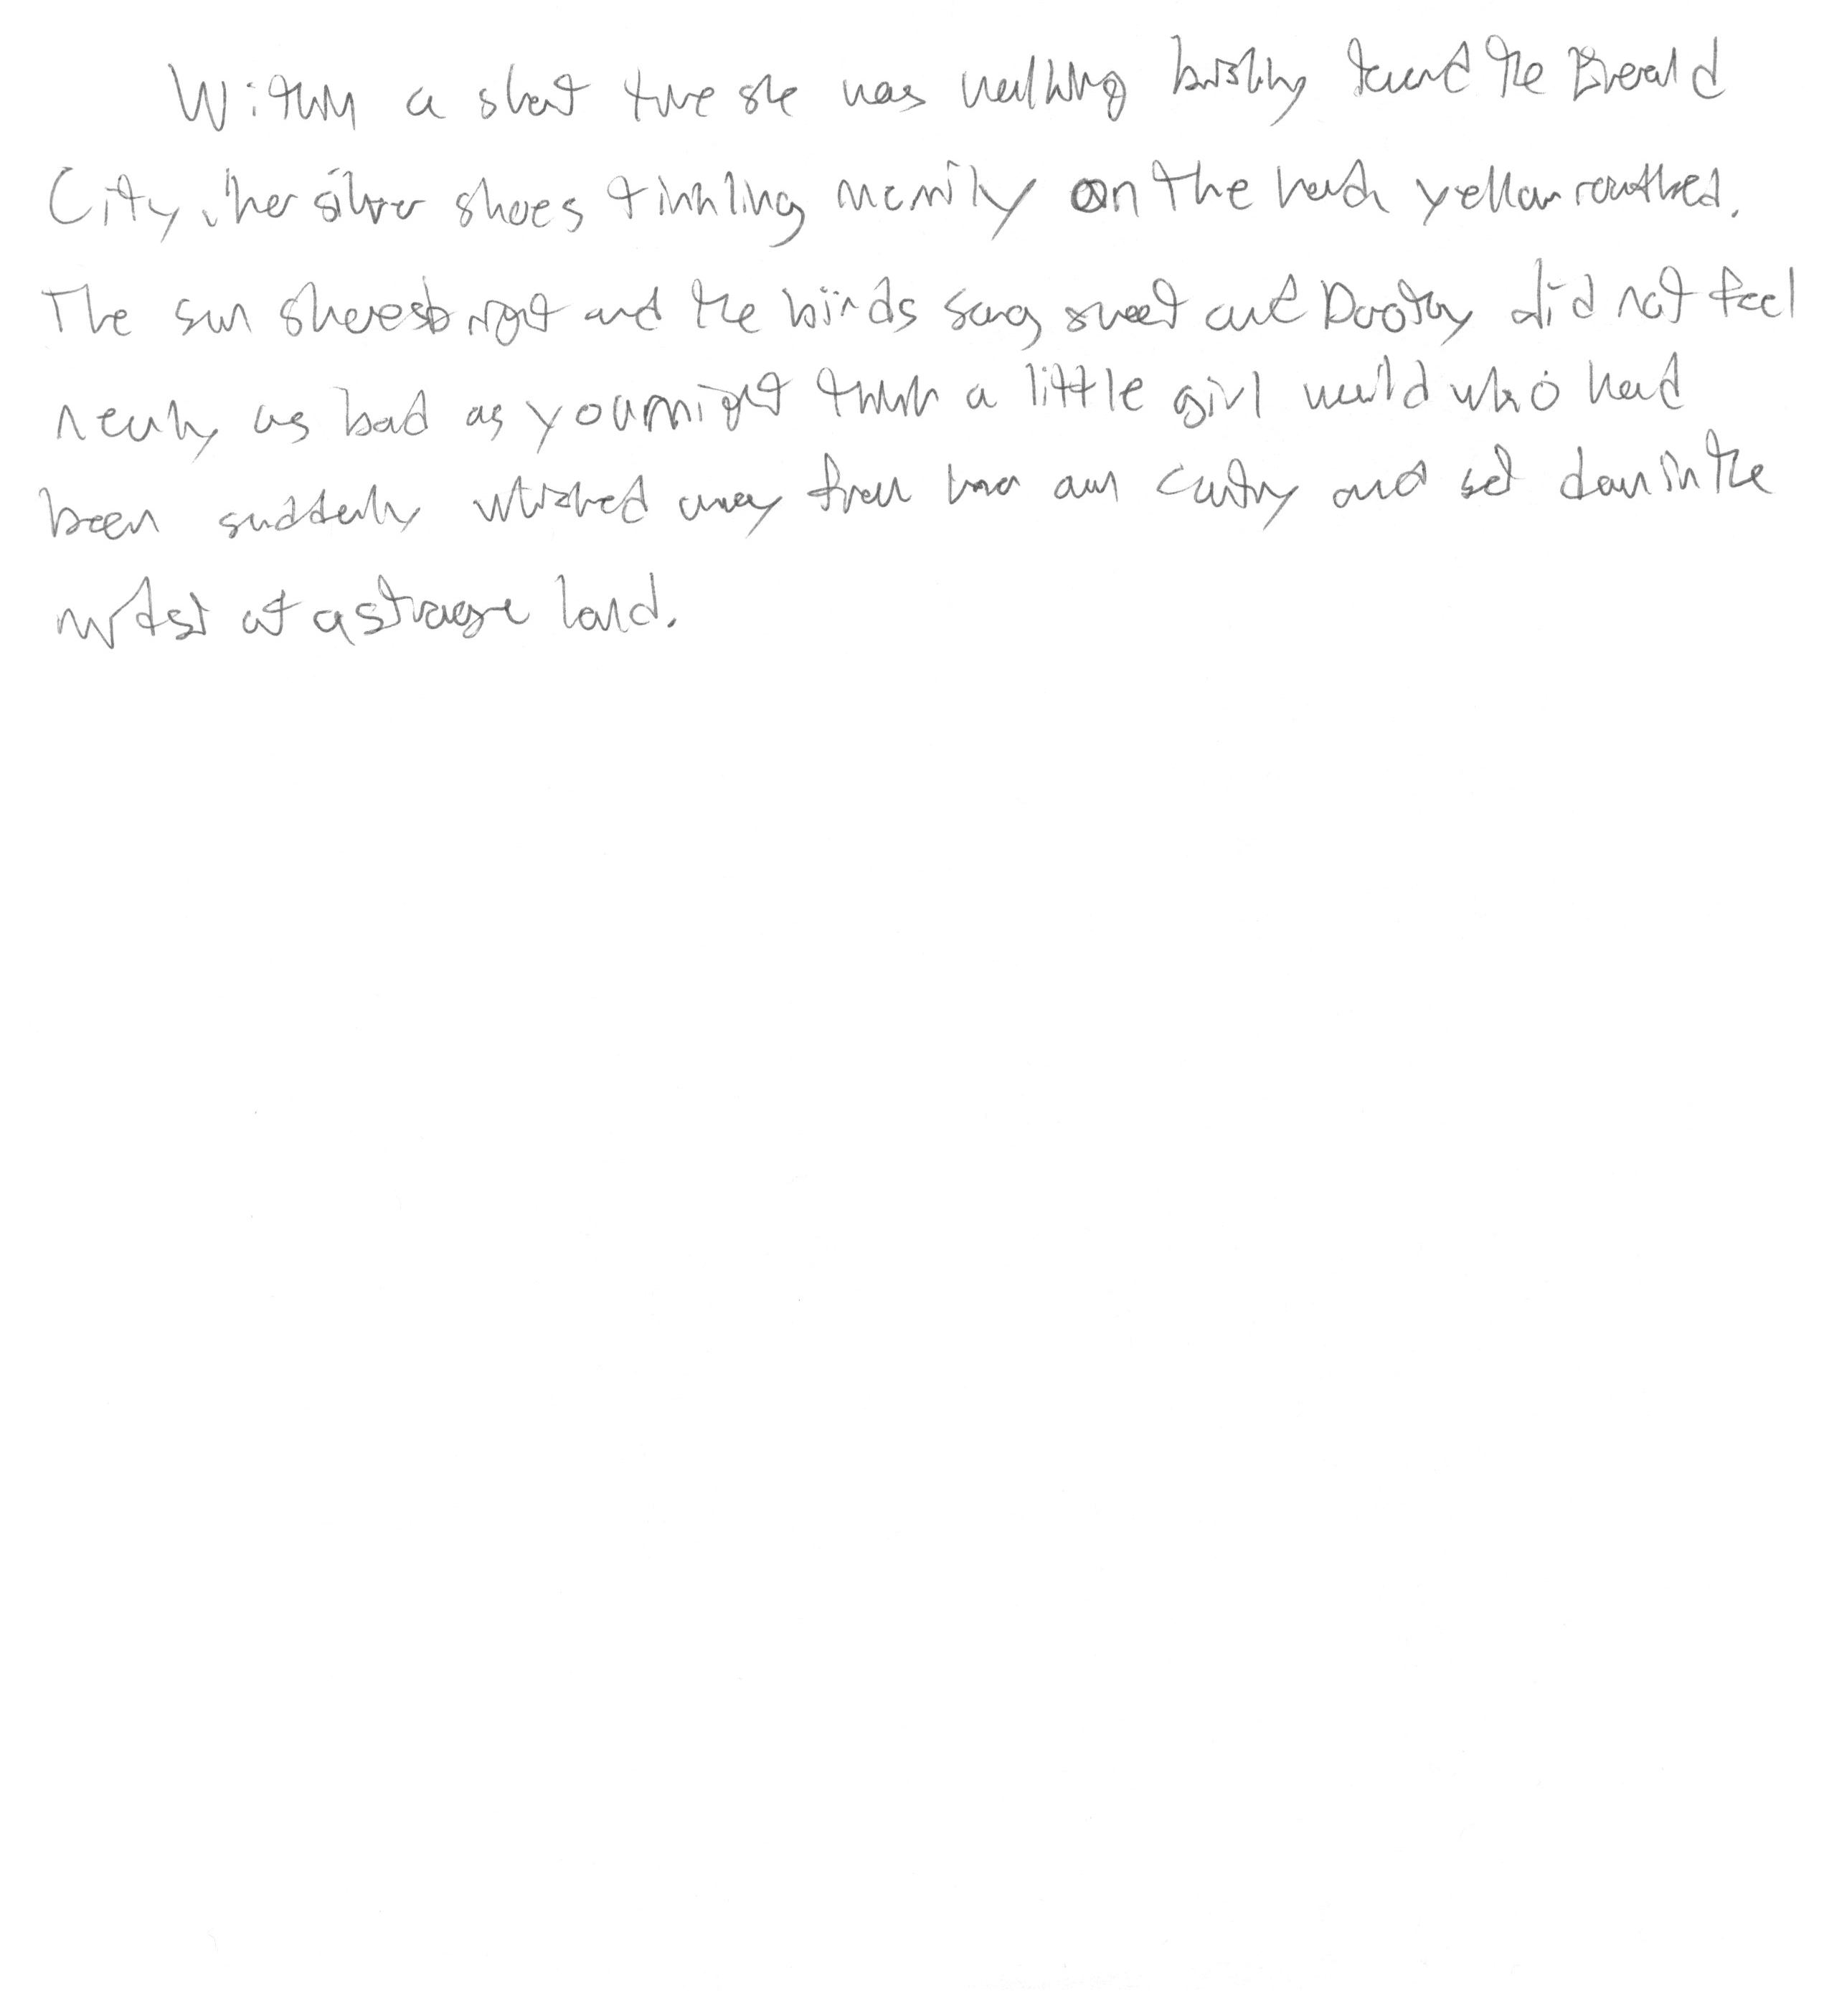 Within a short time she was walking briskly toward the Emerald
City, her silver shoes tinkling merrily on the hard yellow roadbed.
The sun shone bright and the birds sang sweet and Dorothy did not feel
nearly as bad as you might think a little girl would who had
been suddenly whisked away from her own country and set down in the
midst of a strange land.